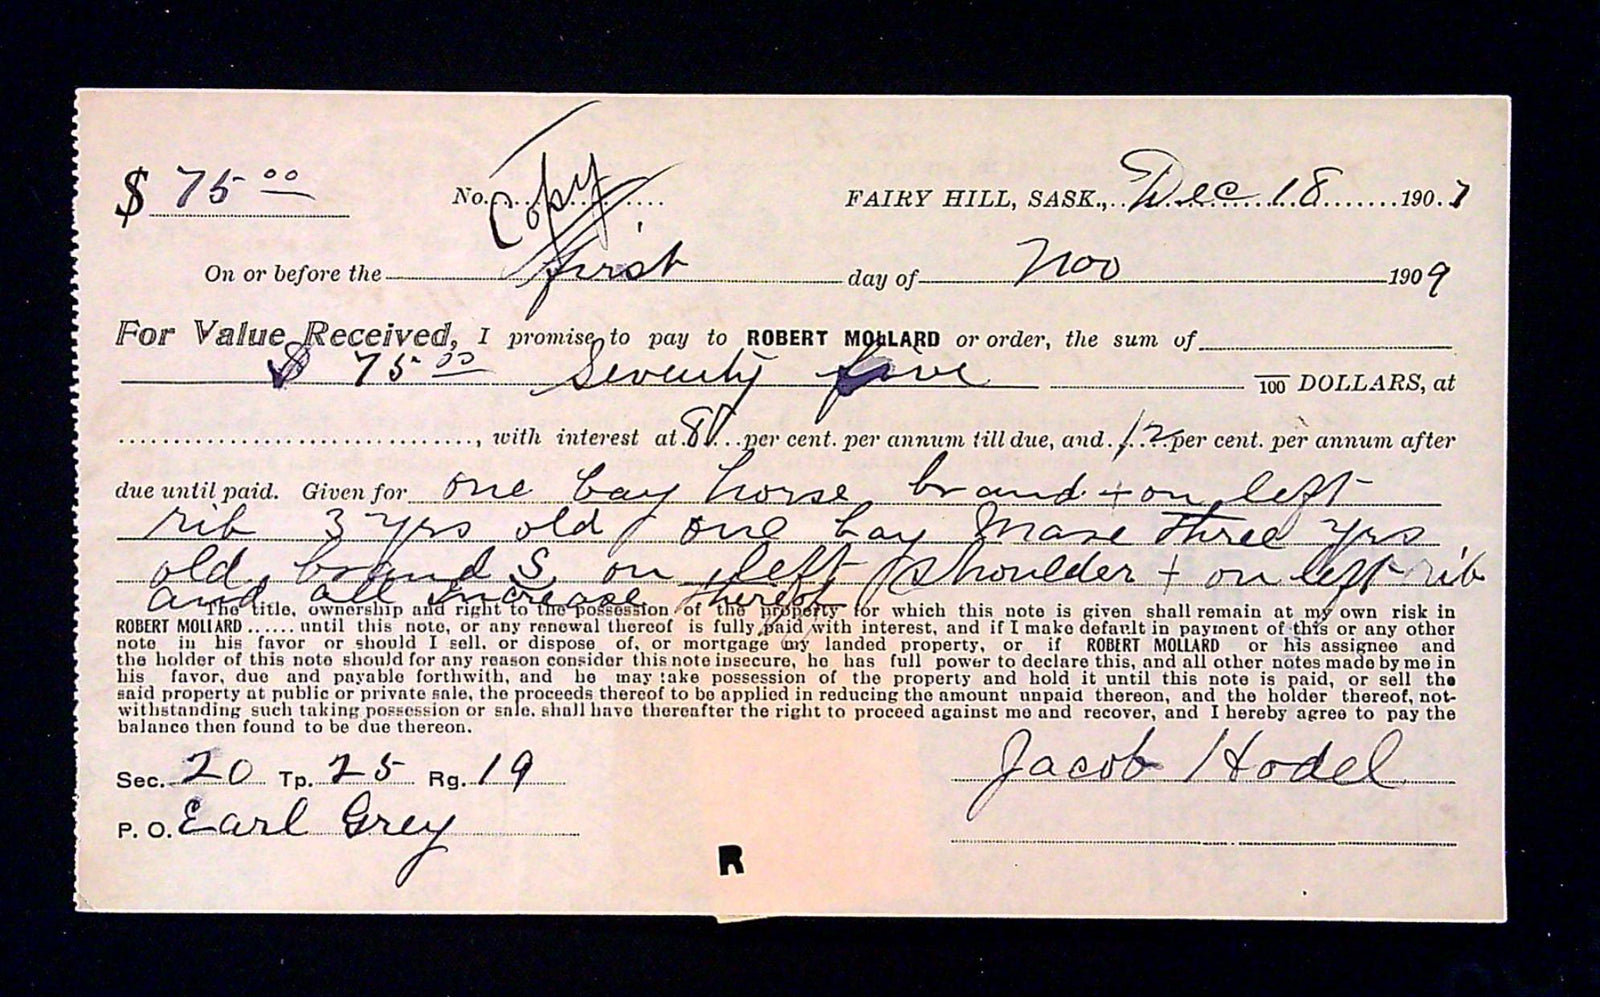 $ 75 00 No. Copy FAIRY HILL, SASK., Dec 18 1907
On or before the first day of Nov 1909
For Value Received, I promise to pay to ROBERT MOLLARD or order, the sum of
$ 75 00 Seventy five /100 DOLLARS, at
, with interest at 8 per cent. per annum till due, and 12 per cent. per annum after
due until paid. Given for one bay horse brand + on left
rib 3 yrs old one bay Mare three yrs
old, brand S on left shoulder + on left rib
and all Increase thereof
The title, ownership and right to the possession of the property for which this note is given shall remain at my own risk in
ROBERT MOLLARD ...... until this note, or any renewal thereof is fully paid with interest, and if I make default in payment of this or any other
note in his favor or should I sell, or dispose of, or mortgage my landed property, or if ROBERT MOLLARD or his assignee and
the holder of this note should for any reason consider this note insecure, he has full power to declare this, and all other notes made by me in
his favor, due and payable forthwith, and he may take possession of the property and hold it until this note is paid, or sell the
said property at public or private sale, the proceeds thereof to be applied in reducing the amount unpaid thereon, and the holder thereof, not-
withstanding such taking possession or sale, shall have thereafter the right to proceed against me and recover, and I hereby agree to pay the
balance then found to be due thereon.
Sec. 20 Tp. 25 Rg. 19 Jacob Hodel
P. O. Earl Grey
R